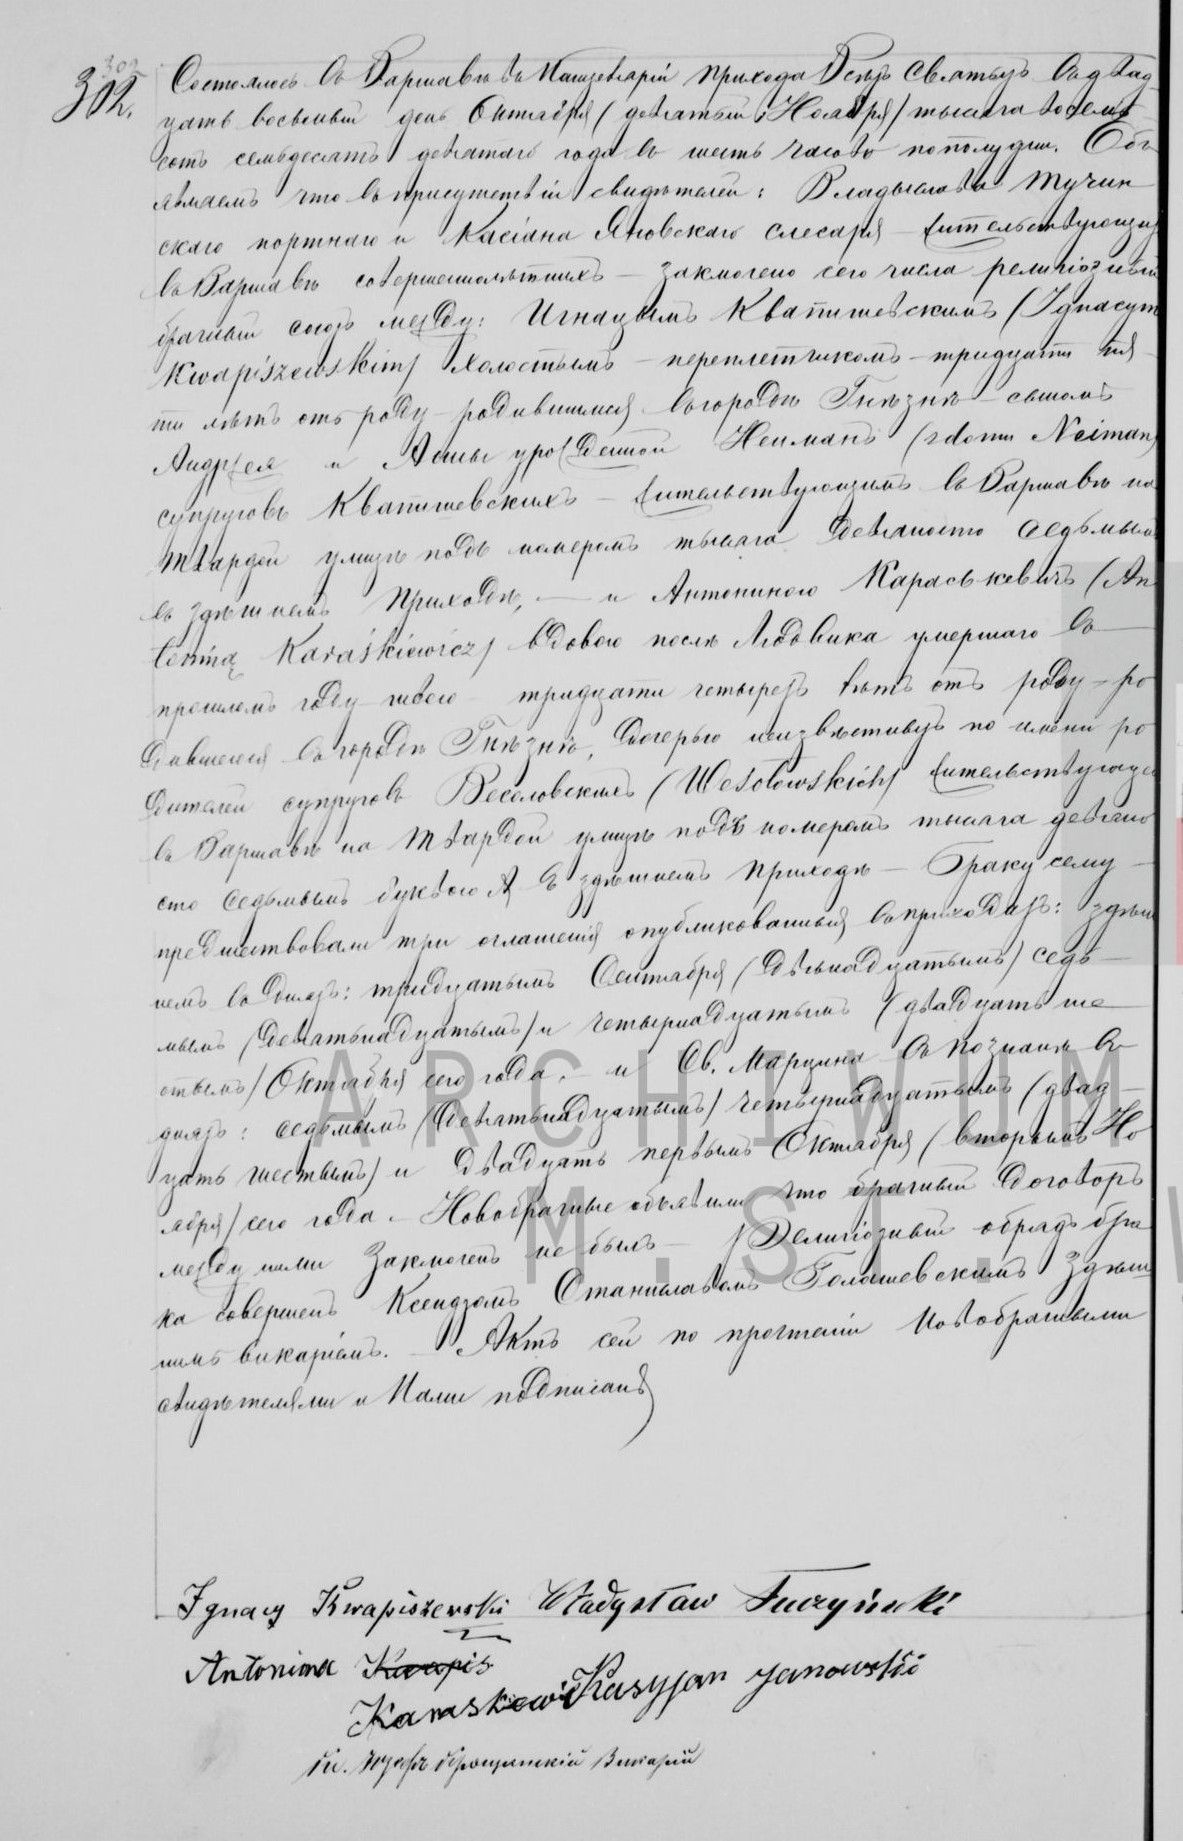 302
302.
Состоялось въ Варшавѣ въ Канцеляріи прихода Всѣхъ Святыхъ въ двад
цать восьмый день Октября (девятый Ноября) тысяча восемь
сотъ семьдесятъ девятаго года въ шесть часовъ пополудни. Объ
являемъ что въ присутствіи свидѣтелей: Владыслава Тучин
скаго портнаго и Касіана Яновскаго слесаря – жительствующихъ
въ Варшавѣ совершеннолѣтнихъ – заключено сего числа религіозный
брачный союзъ между: Игнацымъ Квапишевскимъ (Ignacym
Kwapiszewskim) холостымъ – переплетчикомъ – тридцати пя
ти лѣтъ отъ роду – родившимся въ городѣ Гнѣзнѣ – сыномъ
Андржея и Анны урожденной Нейманъ (z domu Neiman)
супруговъ Квапишевскихъ – жительствующимъ въ Варшавѣ на
Твардой улицѣ подъ номеромъ тысяча девяносто седьмымъ
въ здѣшнемъ приходѣ, – и Антониною Караськевичъ (An
toniną Karaśkiewicz) вдовою послѣ Людвика умершаго въ
прошломъ году – тридцати четырехъ лѣтъ отъ роду – ро
дившеюся въ городѣ Гнѣзнѣ, дочерью неизвѣстныхъ по имени ро
дителей супруговъ Веселовскихъ (Wesołowskich) жительствующею
въ Варшавѣ на Твардой улицѣ подъ номеромъ тысяча девяно
сто седьмымъ буквою А въ здѣшнемъ приходѣ – Браку сему –
предшествовали три оглашенія опубликованныя въ приходахъ: здѣш
немъ въ дняхъ: тридцатымъ Сентября (двѣнадцатымъ) седь–
мымъ (девятнадцатымъ) и четырнадцатымъ (двадцать ше
стымъ) Октября сего года. – и Св. Марцина въ Познанѣ въ
дняхъ: седьмымъ (девятнадцатымъ) четырнадцатымъ (двад–
цать шестымъ) и двадцать первымъ Октября (вторымъ Но
ября) сего года. – Новобрачные объявили что брачный договоръ
между ними заключенъ не былъ – Религіозный обрядъ бра
ка совершенъ Ксендзомъ Станиславомъ Голашевскимъ здѣш
нимъ викаріемъ. – Актъ сей по прочтеніи новобрачными
свидѣтелями и Нами подписанъ
Ignacy Kwapiszewski Władysław Tuczyński
Antonina Kwapis
Karaskiewic Kasyjan Janowski
Викарій
ARCHIWUM
M. S T.